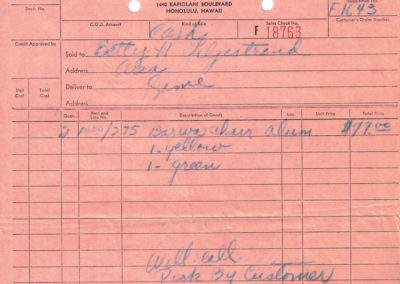 1440 KAPIOLANI BOULEVARD
HONOLULU, HAWAII
Dech. No.
F1643
Customer's Order Number
C.O.D. Amount
Kind of Sale
Sales Check No.
Cash
F 18763
Credit Approved by
Sold to Betty H.
Address Aiea
Deliver to Same
Address
Unit Cost
Total Cost
Quan.
Item and Lot No.
Description of Goods
Loc.
Unit Price
Total Price
2 /275 Barwa chair alum $99.00
1- yellow
1- green
Will call
Pick by Customer